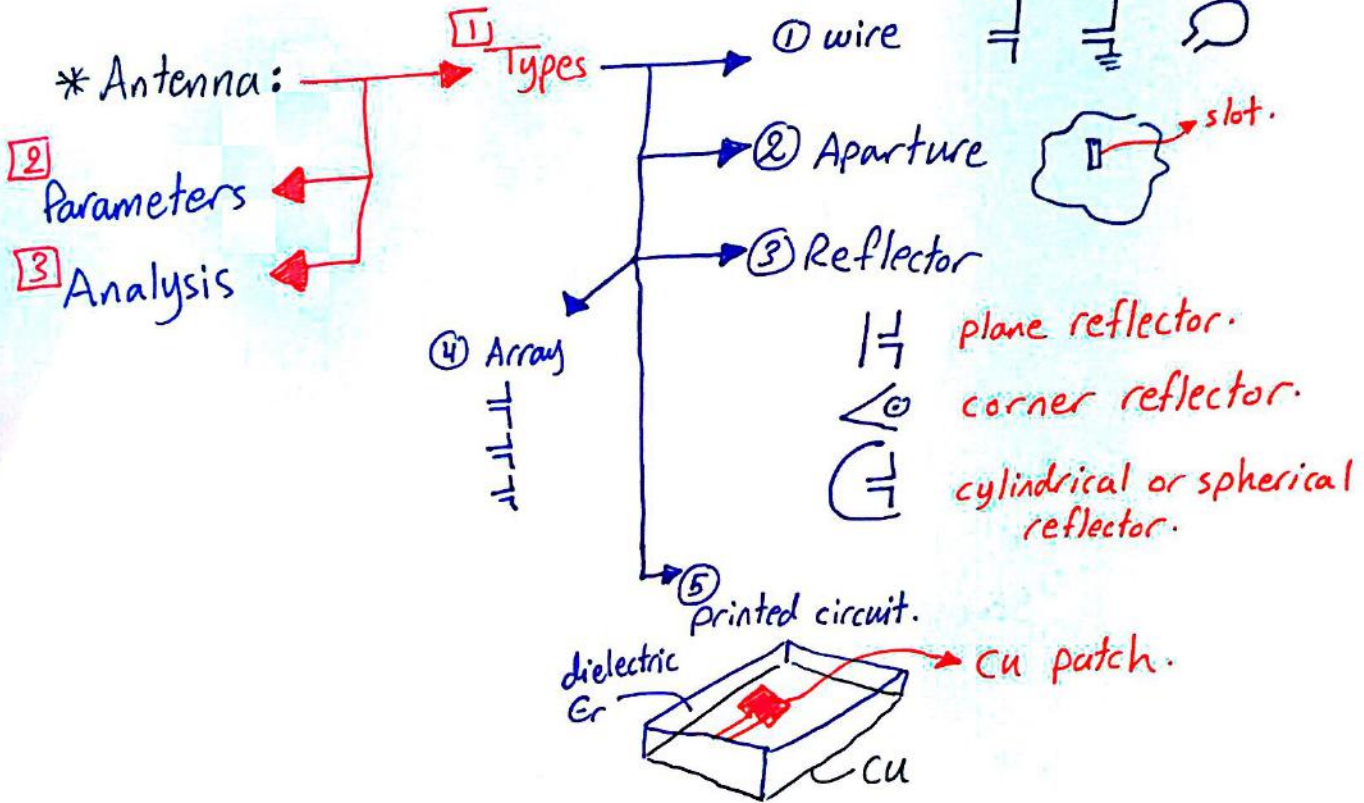 * Antenna:
1 Types
2
Parameters
3 Analysis
① wire
② Aparture
slot.
③ Reflector
plane reflector.
corner reflector.
cylindrical or spherical
reflector.
④ Array
⑤
printed circuit.
dielectric
Er
Cu patch.
Cu